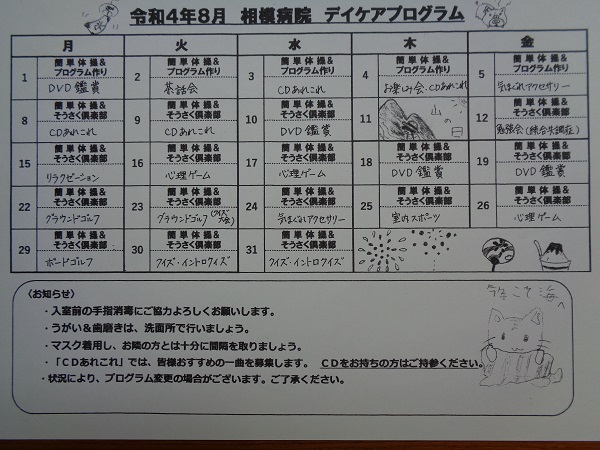 令和4年8月 相模病院 デイケアプログラム
月 火 水 木 金
簡単体操&プログラム作り 簡単体操&プログラム作り 簡単体操&プログラム作り 簡単体操&プログラム作り 簡単体操&プログラム作り
1 DVD鑑賞 2 茶話会 3 CDあれこれ 4 お楽しみ会・CDあれこれ 5 気まぐれアクセサリー
簡単体操&そうさく倶楽部 簡単体操&そうさく倶楽部 簡単体操&そうさく倶楽部 簡単体操&そうさく倶楽部
8 CDあれこれ 9 CDあれこれ 10 DVD鑑賞 11 山の日 12 勉強会(統合失調症)
簡単体操&そうさく倶楽部 簡単体操&そうさく倶楽部 簡単体操&そうさく倶楽部 簡単体操&そうさく倶楽部 簡単体操&そうさく倶楽部
15 リラクゼーション 16 心理ゲーム 17 心理ゲーム 18 DVD鑑賞 19 DVD鑑賞
簡単体操&そうさく倶楽部 簡単体操&そうさく倶楽部 簡単体操&そうさく倶楽部 簡単体操&そうさく倶楽部 簡単体操&そうさく倶楽部
22 グラウンドゴルフ 23 グラウンドゴルフ(クイズ大会) 24 気まぐれアクセサリー 25 室内スポーツ 26 心理ゲーム
簡単体操&そうさく倶楽部 簡単体操&そうさく倶楽部 簡単体操&そうさく倶楽部
29 ボードゴルフ 30 クイズ・イントロクイズ 31 クイズ・イントロクイズ
〈お知らせ〉
・入室前の手指消毒にご協力よろしくお願いします。
・うがい&歯磨きは、洗面所で行いましょう。
・マスク着用し、お隣の方とは十分に間隔を取りましょう。
・「CDあれこれ」では、皆様おすすめの一曲を募集します。 CDをお持ちの方はご持参ください。
・状況により、プログラム変更の場合がございます。ご了承ください。
今年こそ海へ